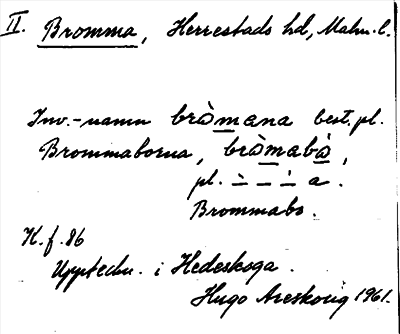 II. Bromma, Herrestads hd, Malm. l.
Inv.-namn bròmana best. pl.
Brommaborna, bròmabå,
pl. – – – a.
Brommabo.
K. f. 86
Uppteckn. i Hedeskoga.
Hugo Areskoug 1961.